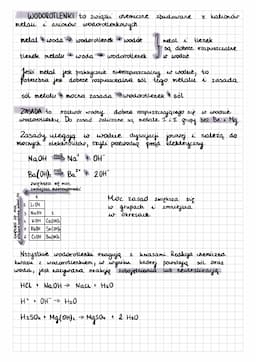 WODOROTLENKI to związki chemiczne zbudowane z kationów
metali i anionów wodorotlenkowych
metal + woda → wodorotlenek + wodór
tlenek metalu + woda → wodorotlenek
metal i tlenek
są dobrze rozpuszczalne
w wodzie
Jeśli metal jest praktycznie nierozpuszczalny w wodzie, to
potrzebna jest dobrze rozpuszczalna sól tego metalu i zasada
sól metalu + mocna zasada → wodorotlenek + sól
ZASADA to roztwór wodny dobrze rozpuszczającego się w wodzie
wodorotlenku. Do zasad zaliczane są metale 1 i 2 grupy bez Be i Mg
Zasady ulegają w wodzie dysocjacji jonowej i należą do
mocnych elektrolitów, czyli przewodzą prąd elektryczny.
NaOH → Na⁺ + OH⁻
Ba(OH)₂ → Ba²⁺ + 2OH⁻
1 2
2 LiOH
3 NaOH
4 KOH Ca(OH)₂
5 RbOH Sr(OH)₂
6 CsOH Ba(OH)₂
Moc zasad zwiększa się
w grupach i zmniejsza
w okresach
Wszystkie wodorotlenki reagują z kwasami. Reakcja chemiczna
kwasu z wodorotlenkiem, w wyniku której powstają sól oraz
woda, jest nazywana reakcją zobojętniania lub neutralizacji
HCl + NaOH → NaCl + H₂O
H⁺ + OH⁻ → H₂O
H₂SO₄ + Mg(OH)₂ → MgSO₄ + 2 H₂O